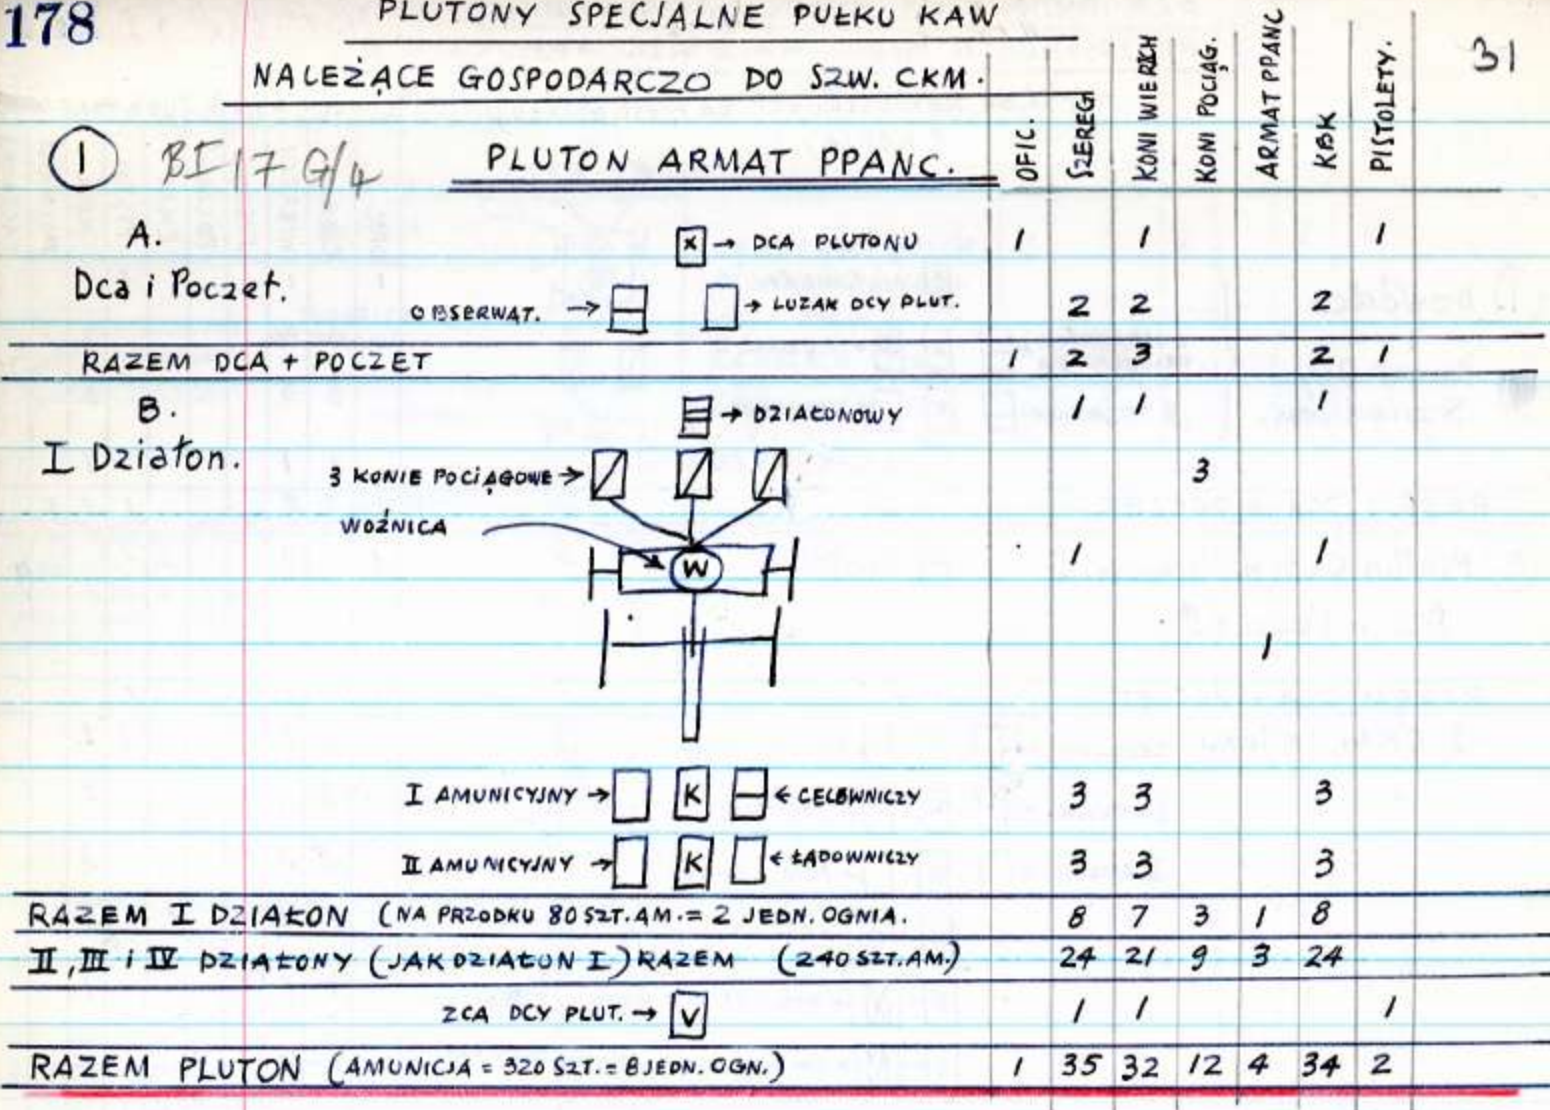 178
PLUTONY SPECJALNE PUŁKU KAW
31
NALEŻĄCE GOSPODARCZO DO SZW. CKM.
OFIC. SZEREG KONI WIERZCH KONI POCIĄG. ARMAT PPANC KBK PISTOLETY.
1 BI 17 G/4 PLUTON ARMAT PPANC.
A. X → DCA PLUTONU 1 1 1
Dca i Poczet.
OBSERWAT. → → LUZAK DCY PLUT. 2 2 2
RAZEM DCA + POCZET 1 2 3 2 1
B. → DZIAŁONOWY 1 1 1
I Działon.
3 KONIE POCIĄGOWE → 3
WOŹNICA
W 1 1
1
I AMUNICYJNY → K ← CELOWNICZY 3 3 3
II AMUNICYJNY → K ← ŁADOWNICZY 3 3 3
RAZEM I DZIAŁON (NA PRZODKU 80 SZT. AM. = 2 JEDN. OGNIA. 8 7 3 1 8
II, III i IV DZIAŁONY (JAK DZIAŁON I) RAZEM (240 SZT. AM.) 24 21 9 3 24
ZCA DCY PLUT. → V 1 1 1
RAZEM PLUTON (AMUNICJA = 320 SZT. = 8 JEDN. OGN.) 1 35 32 12 4 34 2